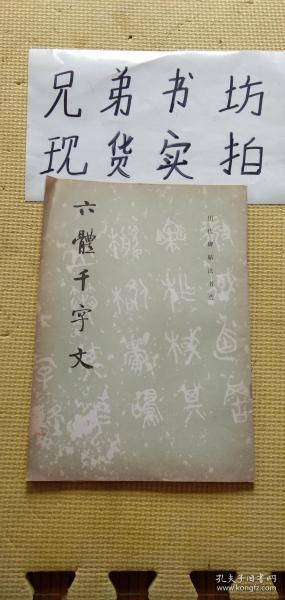 兄弟书坊
现货实拍
六體千字文
历代碑帖法书选
孔夫子旧书网
www.kongfz.com